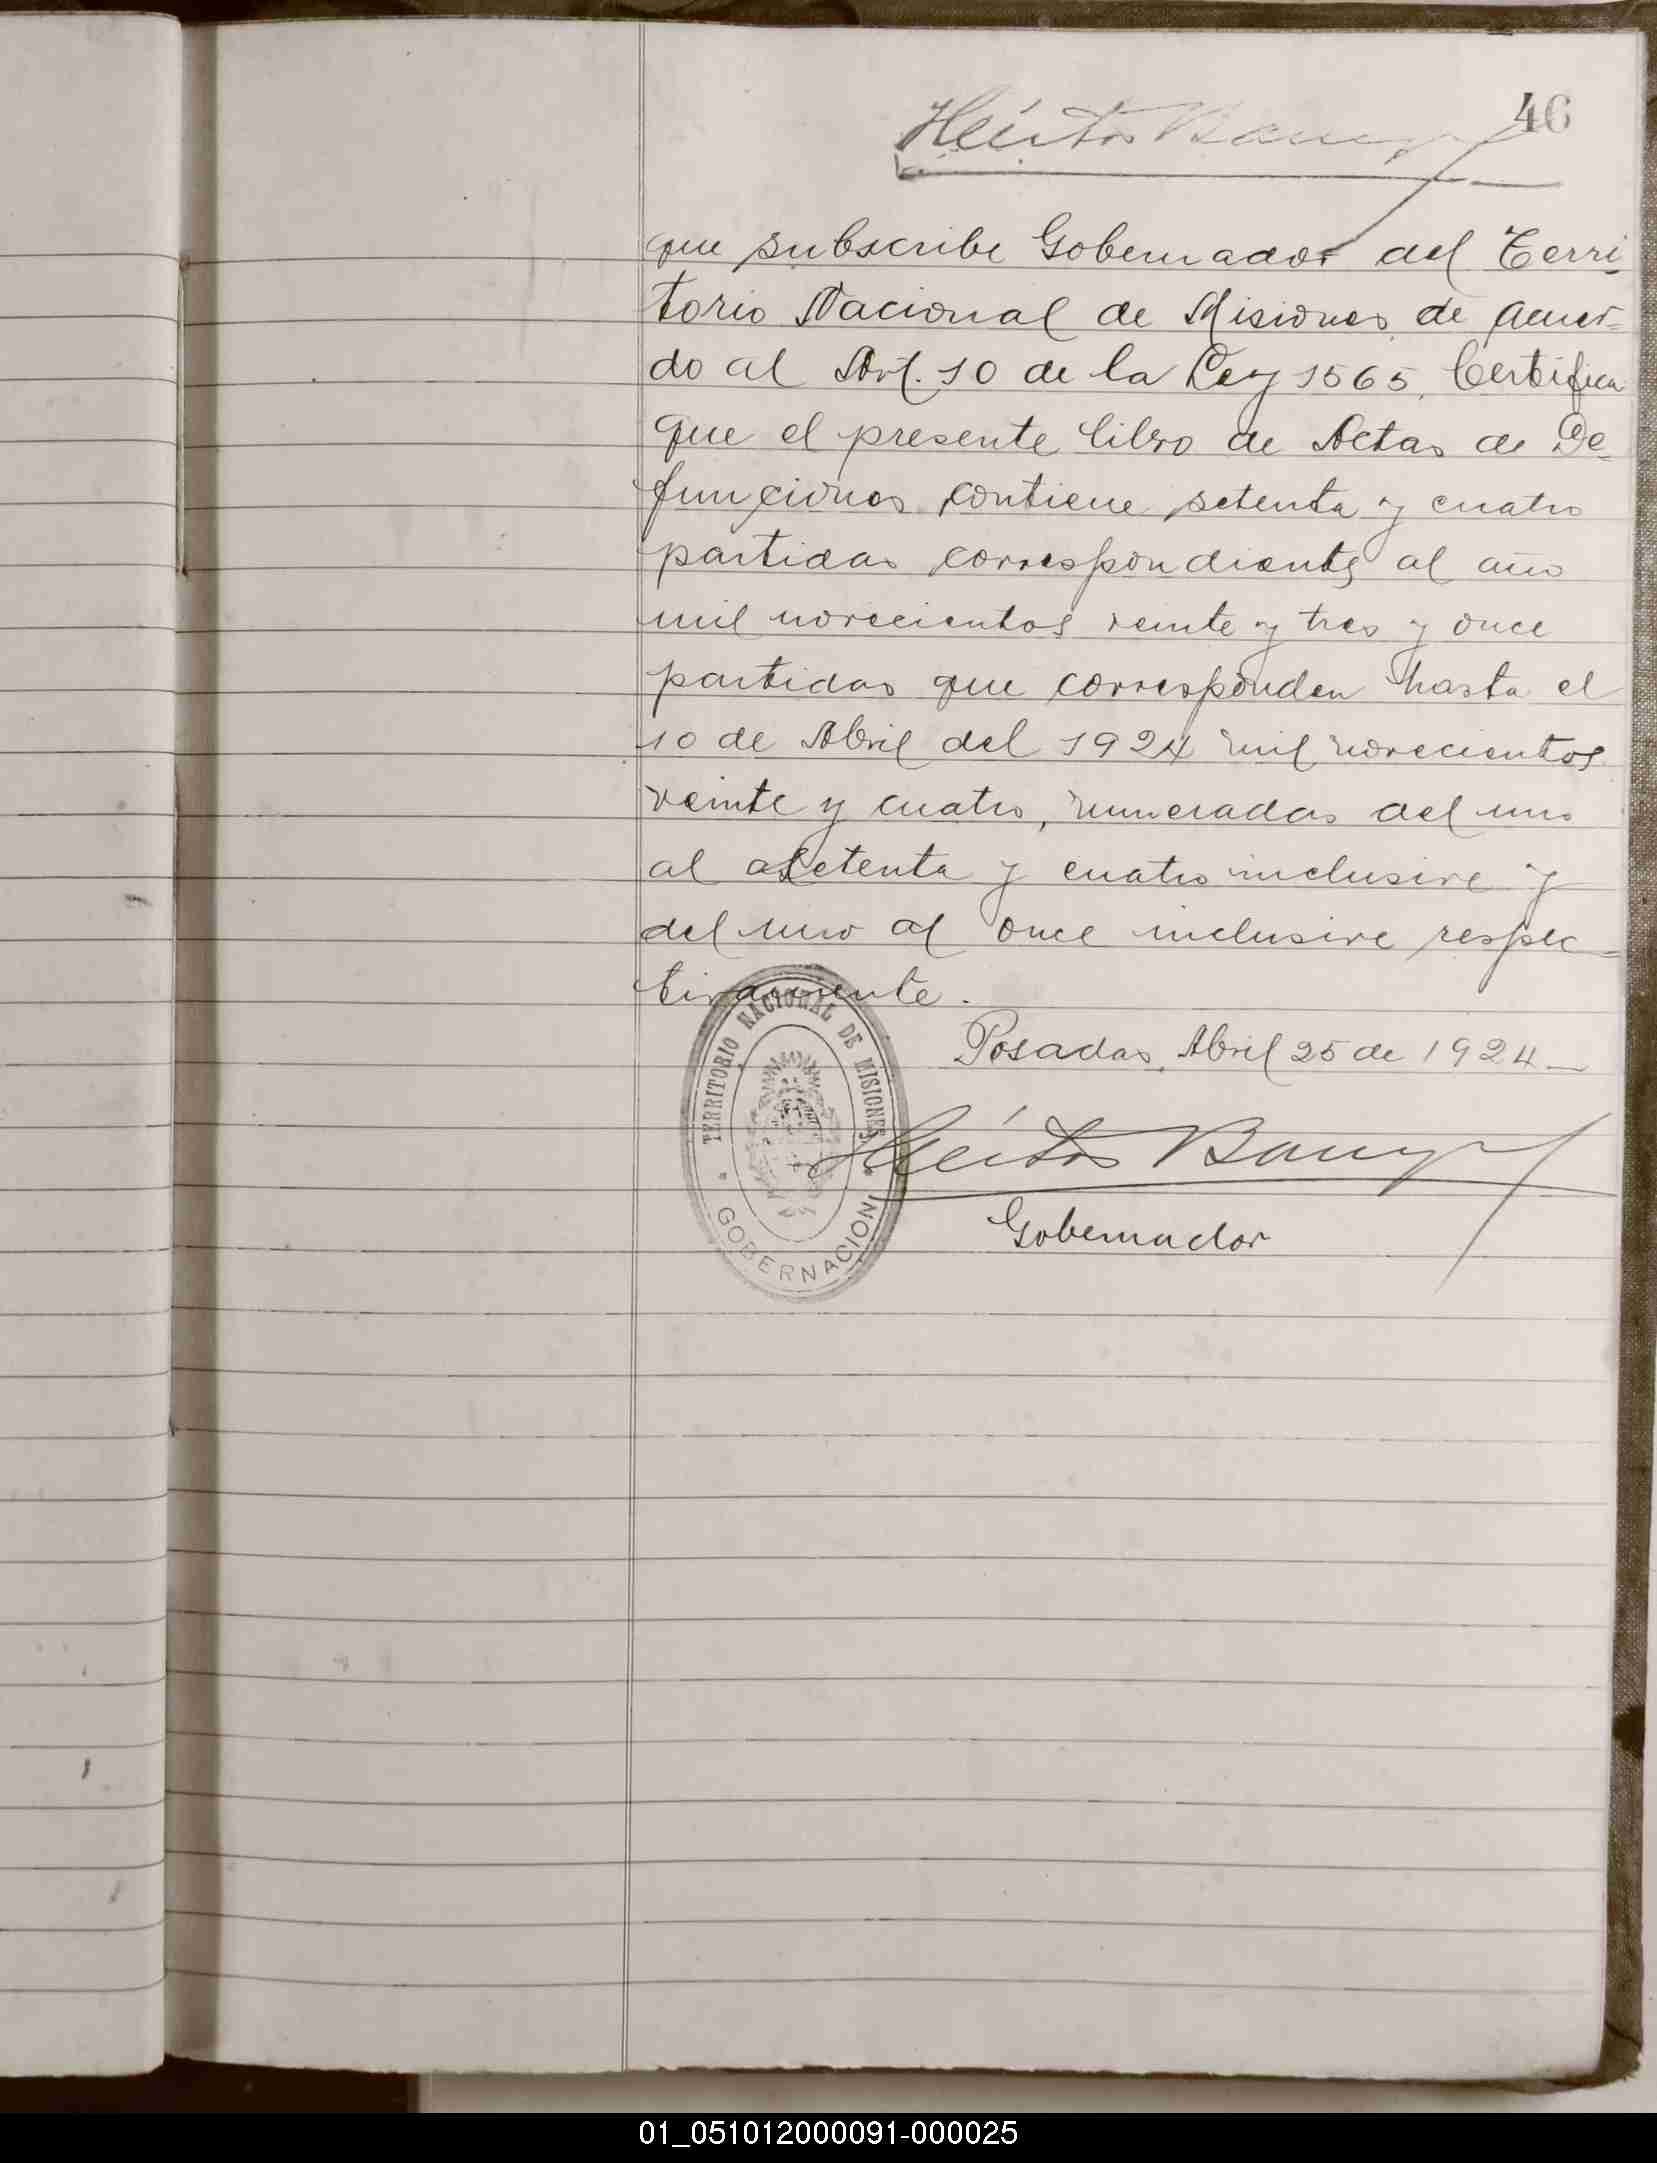 46
Héctor Barreyro
que subscribe Gobernador del Terri-
torio Nacional de Misiones, de acuer-
do al Art. 10 de la Ley 1565, Certifica
que el presente libro de Actas de De-
funciones contiene setenta y cuatro
partidas correspondientes al año
mil novecientos veinte y tres y once
partidas que corresponden hasta el
10 de Abril del 1924 mil novecientos
veinte y cuatro, numeradas del uno
al setenta y cuatro inclusive y
del uno al once inclusive respec-
tivamente.
Posadas, Abril 25 de 1924
TERRITORIO NACIONAL DE MISIONES
GOBERNACION
Héctor Barreyro
Gobernador
01_051012000091-000025